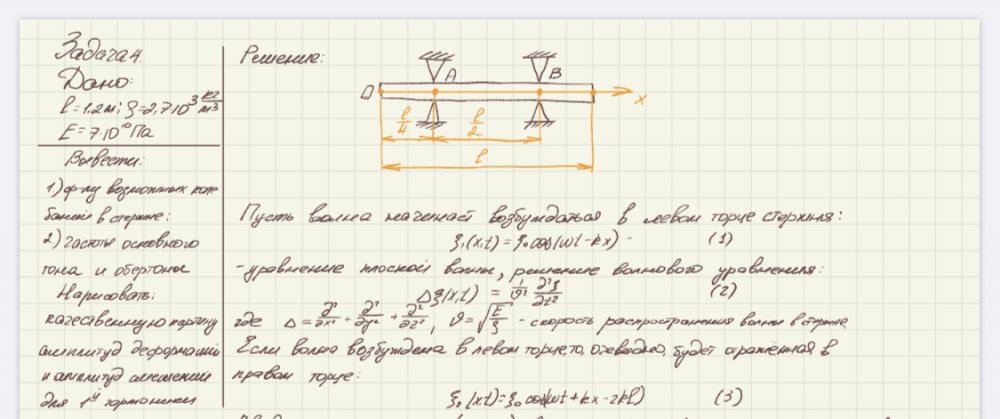 Задача 4.
Дано:
l = 1.2 м; ρ = 2,7·10³ кг/м³
E = 7·10¹⁰ Па
Вывести:
1) ф-лу возможных коле
баний в стержне:
2) частоты основного
тона и обертонов
Нарисовать:
качественную картину
амплитуд деформаций
и амплитуд смещений
для 1ой гармоники
Решение:
A B
O x
l/4 l/2
l
Пусть волна начинает возбуждаться в левом торце стержня:
ξ₁(x,t) = ξ₀cos(ωt - kx) - (1)
- уравнение плоской волны, решение волнового уравнения:
Δξ(x,t) = 1/υ² ∂²ξ/∂t² (2)
где Δ = ∂²/∂x² + ∂²/∂y² + ∂²/∂z², υ = √(E/ρ) - скорость распространения волны в стержне.
Если волна возбуждена в левом торце, то, очевидно, будет отражённая в
правом торце:
ξ₂(x,t) = ξ₀cos(ωt + kx - 2kl) (3)